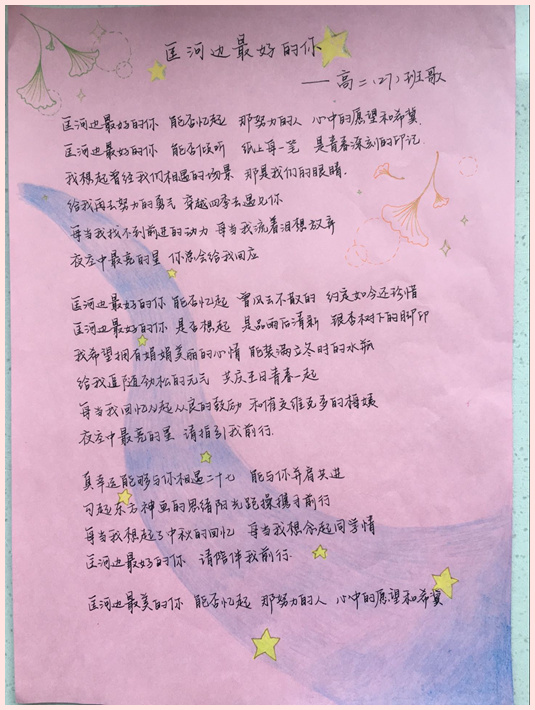 匡河边最好的你
——高二(27)班歌
匡河边最好的你 能否忆起 那努力的人 心中的愿望和希冀
匡河边最好的你 能否倾听 纸上每一笔 是青春深刻的印记
我想起曾经我们相遇的场景 那是我们的眼睛.
给我再去努力的勇气 穿越四季去遇见你
每当我找不到前进的动力 每当我流着泪想放弃
夜空中最亮的星 你总会给我回应
匡河边最好的你 能否忆起 曾风云不散的 约定如今还珍惜
匡河边最好的你 是否想起 是品雨后清新 银杏树下的脚印
我希望拥有娟娟美丽的心情 能装满立冬时的水瓶
给我追随劲松的元气 共庆生日青春一起
每当我回忆起从良的鼓励 和倩文维克多的梅姨
夜空中最亮的星 请指引我前行.
真幸运能够与你相遇二十七 能与你并肩共进
可起东方神画的思绪阳光跑操携手前行
每当我想起了中秋的回忆 每当我想念起同学情
匡河边最好的你 请陪伴我前行.
匡河边最美的你 能否忆起 那努力的人 心中的愿望和希冀